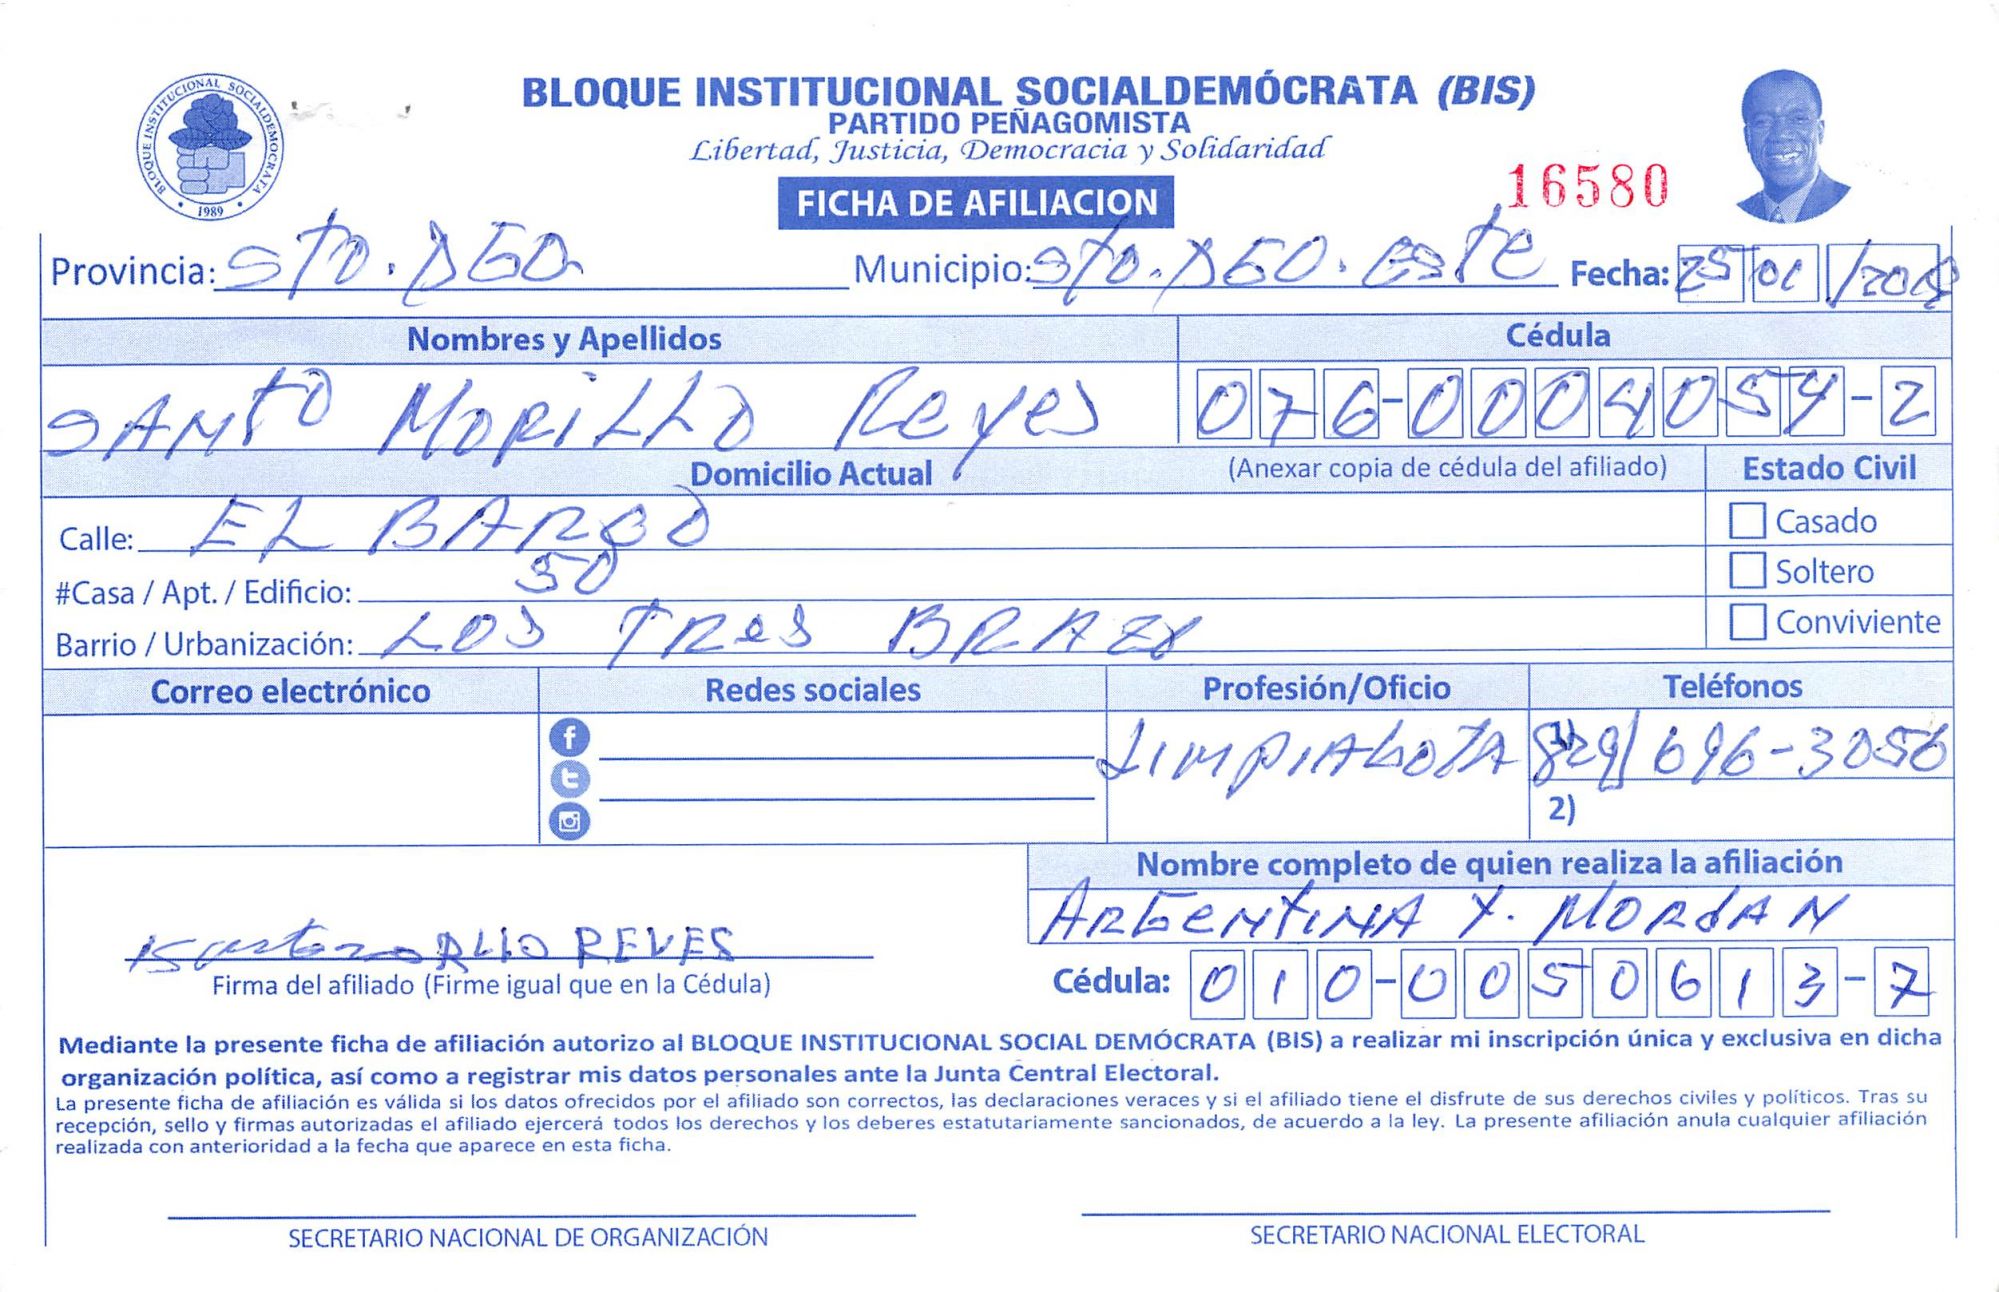 BLOQUE INSTITUCIONAL SOCIALDEMOCRATA
1989
BLOQUE INSTITUCIONAL SOCIALDEMÓCRATA (BIS)
PARTIDO PEÑAGOMISTA
Libertad, Justicia, Democracia y Solidaridad
16580
FICHA DE AFILIACION
Provincia: Sto. DGO. Municipio: Sto. DGO. este Fecha: 25 01 /2018
Nombres y Apellidos Cédula
SANTO MORILLO Reyes 076-0004054-2
Domicilio Actual (Anexar copia de cédula del afiliado) Estado Civil
Calle: EL BARCO Casado
#Casa / Apt. / Edificio: 50 Soltero
Barrio / Urbanización: LOS TRES BRAZO Conviviente
Correo electrónico Redes sociales Profesión/Oficio Teléfonos
LIMPIABOTA 1) 829/696-3056
2)
Nombre completo de quien realiza la afiliación
ARGENTINA Y. MORDAN
REYES
Firma del afiliado (Firme igual que en la Cédula) Cédula: 010-0050613-7
Mediante la presente ficha de afiliación autorizo al BLOQUE INSTITUCIONAL SOCIAL DEMÓCRATA (BIS) a realizar mi inscripción única y exclusiva en dicha
organización política, así como a registrar mis datos personales ante la Junta Central Electoral.
La presente ficha de afiliación es válida si los datos ofrecidos por el afiliado son correctos, las declaraciones veraces y si el afiliado tiene el disfrute de sus derechos civiles y políticos. Tras su
recepción, sello y firmas autorizadas el afiliado ejercerá todos los derechos y los deberes estatutariamente sancionados, de acuerdo a la ley. La presente afiliación anula cualquier afiliación
realizada con anterioridad a la fecha que aparece en esta ficha.
SECRETARIO NACIONAL DE ORGANIZACIÓN SECRETARIO NACIONAL ELECTORAL